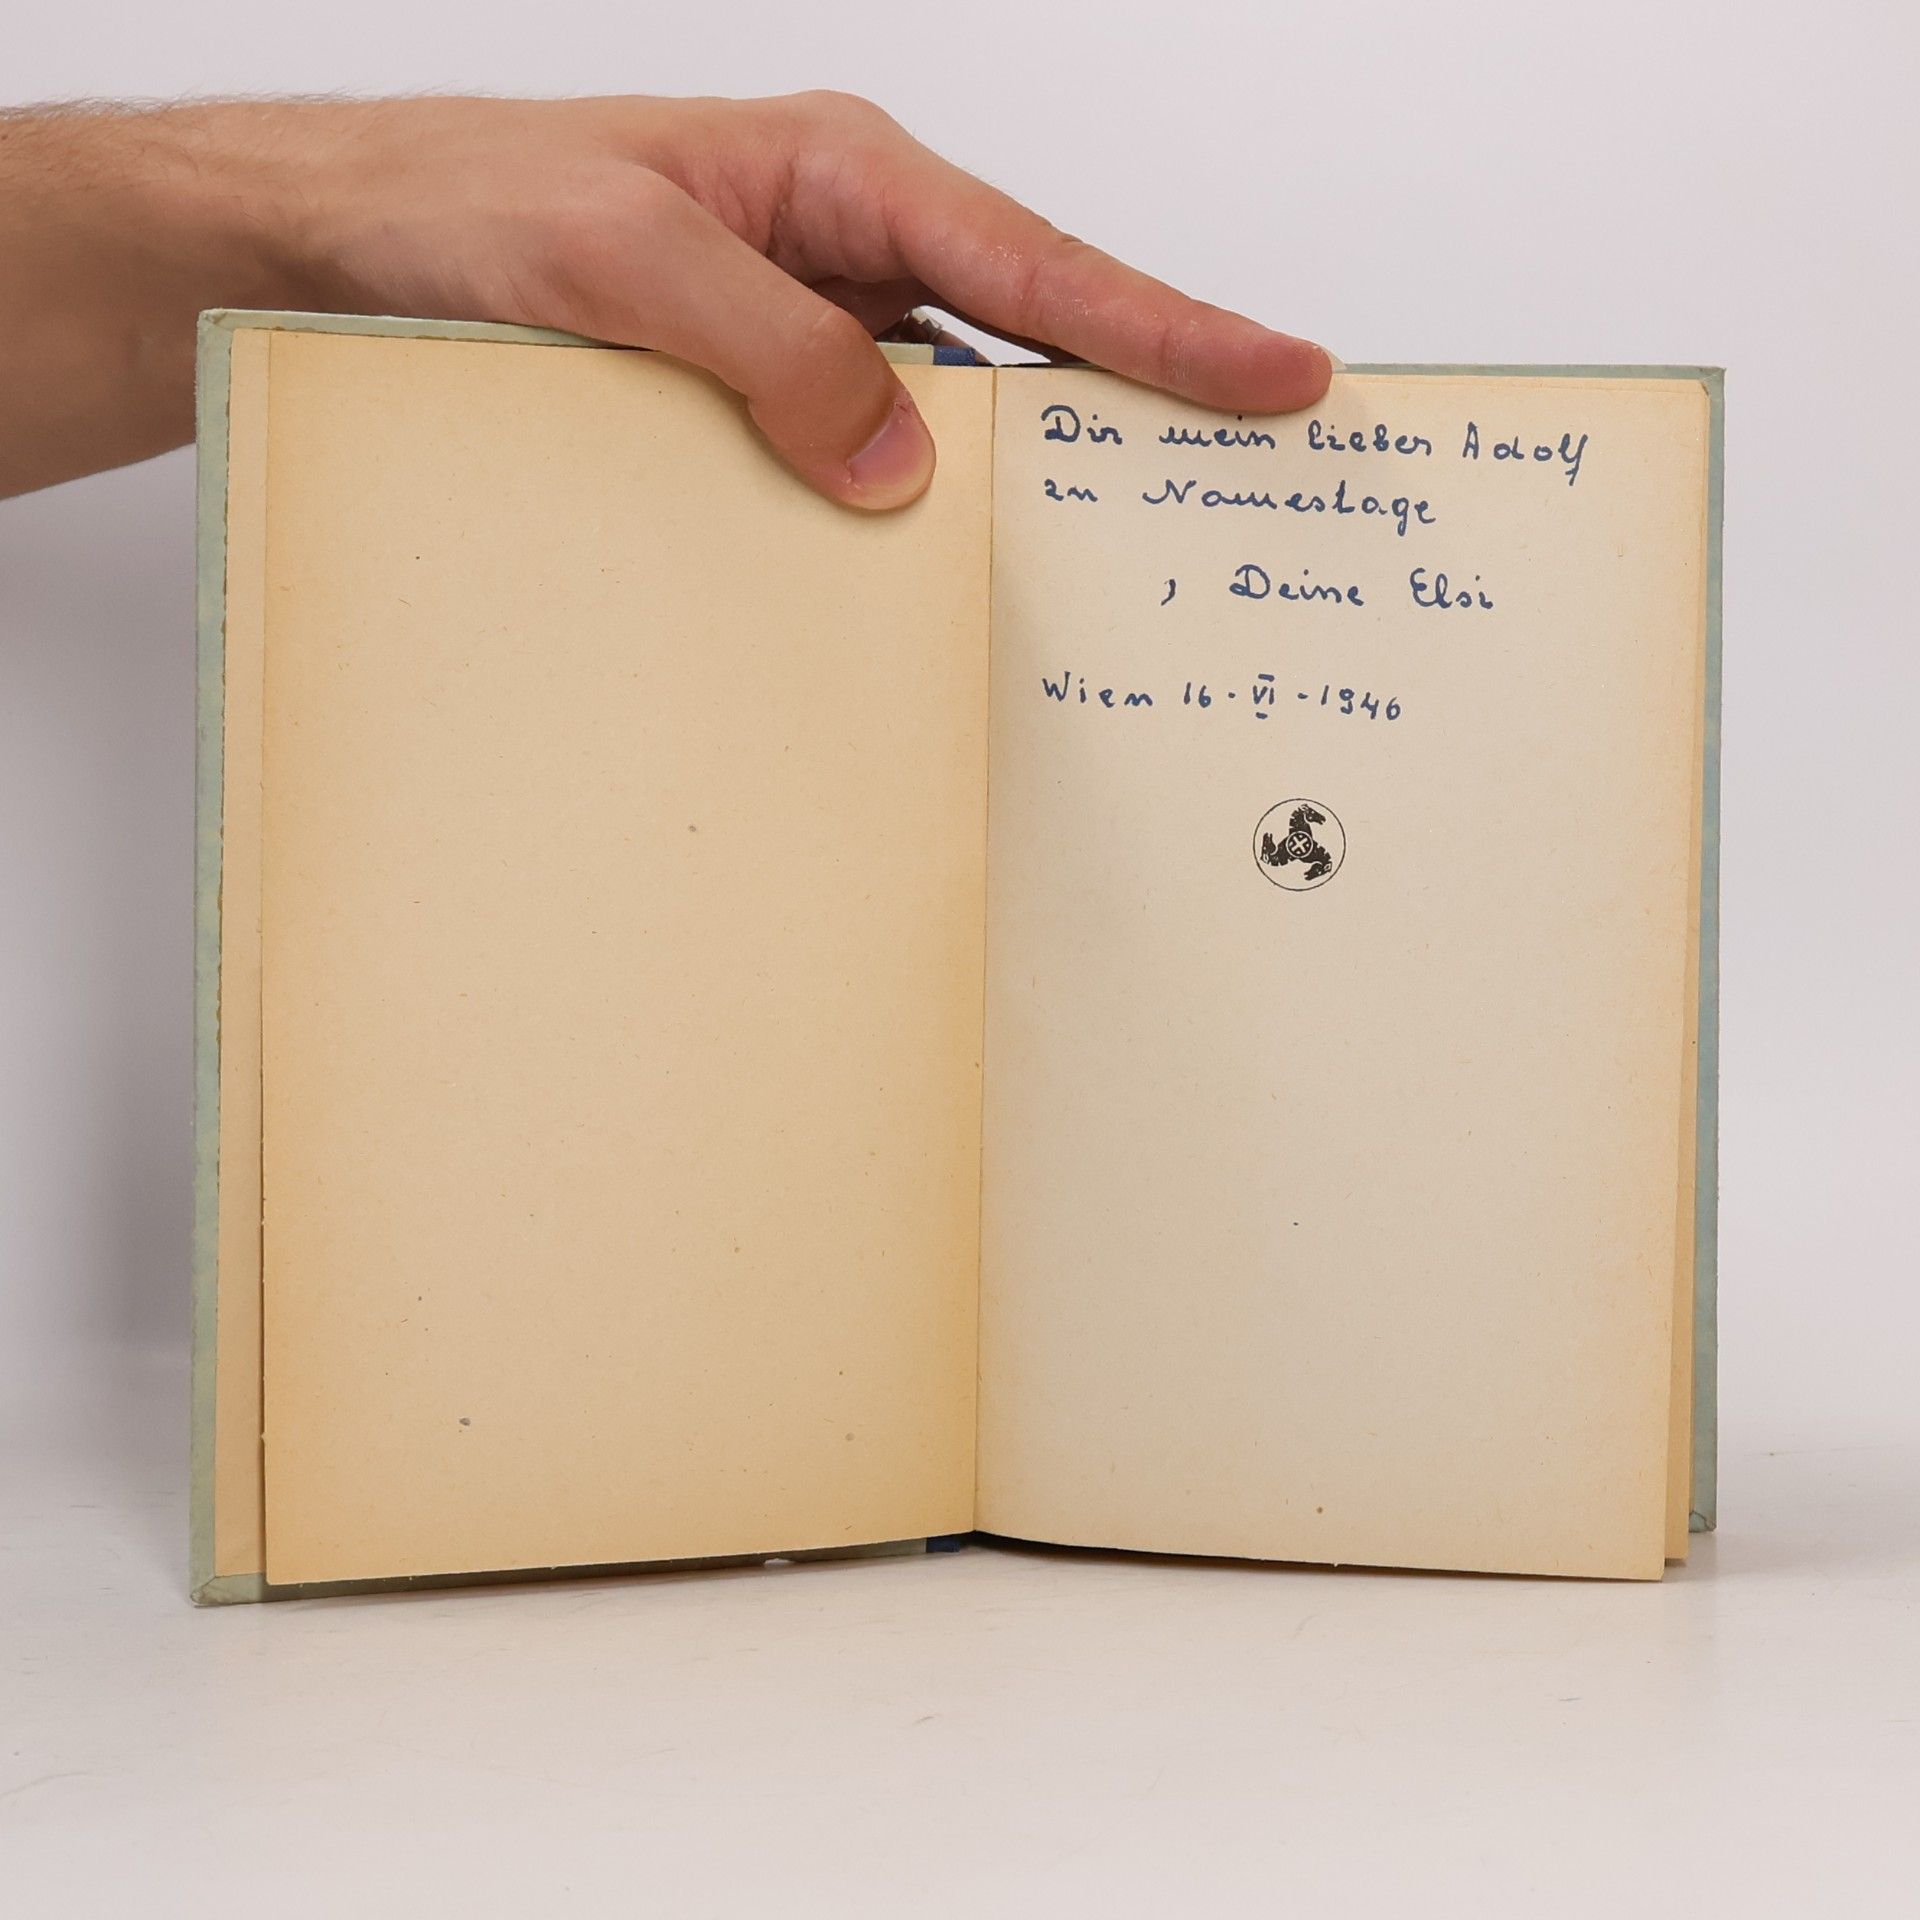 Dir mein lieber Adolf
zu Namestage
, Deine Elsi
Wien 16 - VI - 1946